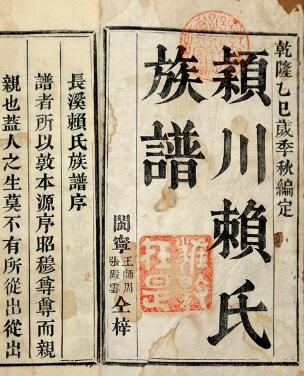 乾隆乙巳歲季秋編定
穎川賴氏
族譜
閩寧王師周張殿雲仝梓
長溪賴氏族譜序
譜者所以敦本源序昭穆尊尊而親
親也蓋人之生莫不有所從出從出